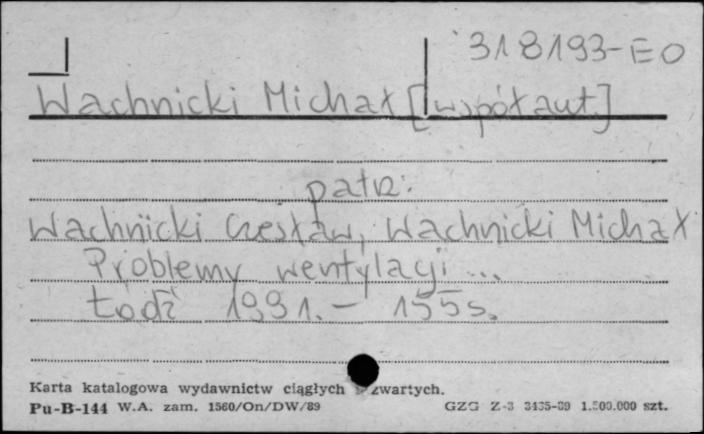 318193-EO
Wachnicki Michał [współaut.]
patrz:
Wachnicki Czesław, Wachnicki Michał
Problemy wentylacji...
Łódź 1991. - 155 s.
Karta katalogowa wydawnictw ciągłych zwartych.
Pu-B-144 W.A. zam. 1560/On/DW/89 GZG Z-3 3435-89 1.500.000 szt.